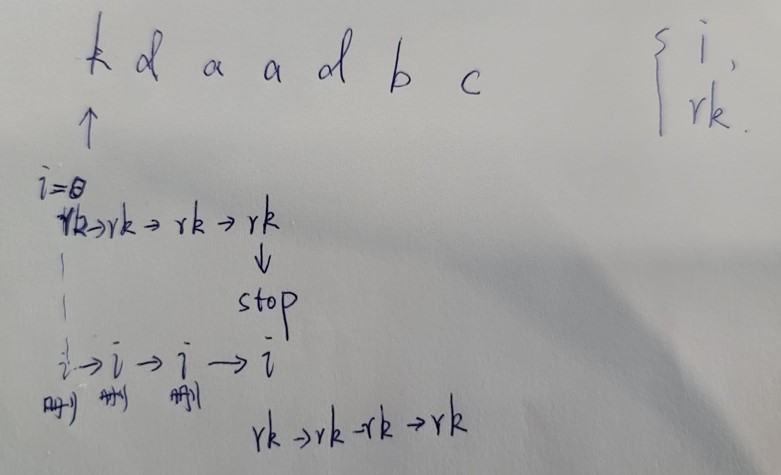 k d a a d b c
{ i,
rk.
↑
i=0
rk→rk→rk→rk
↓
stop
i→i→i→i
rk→rk→rk→rk